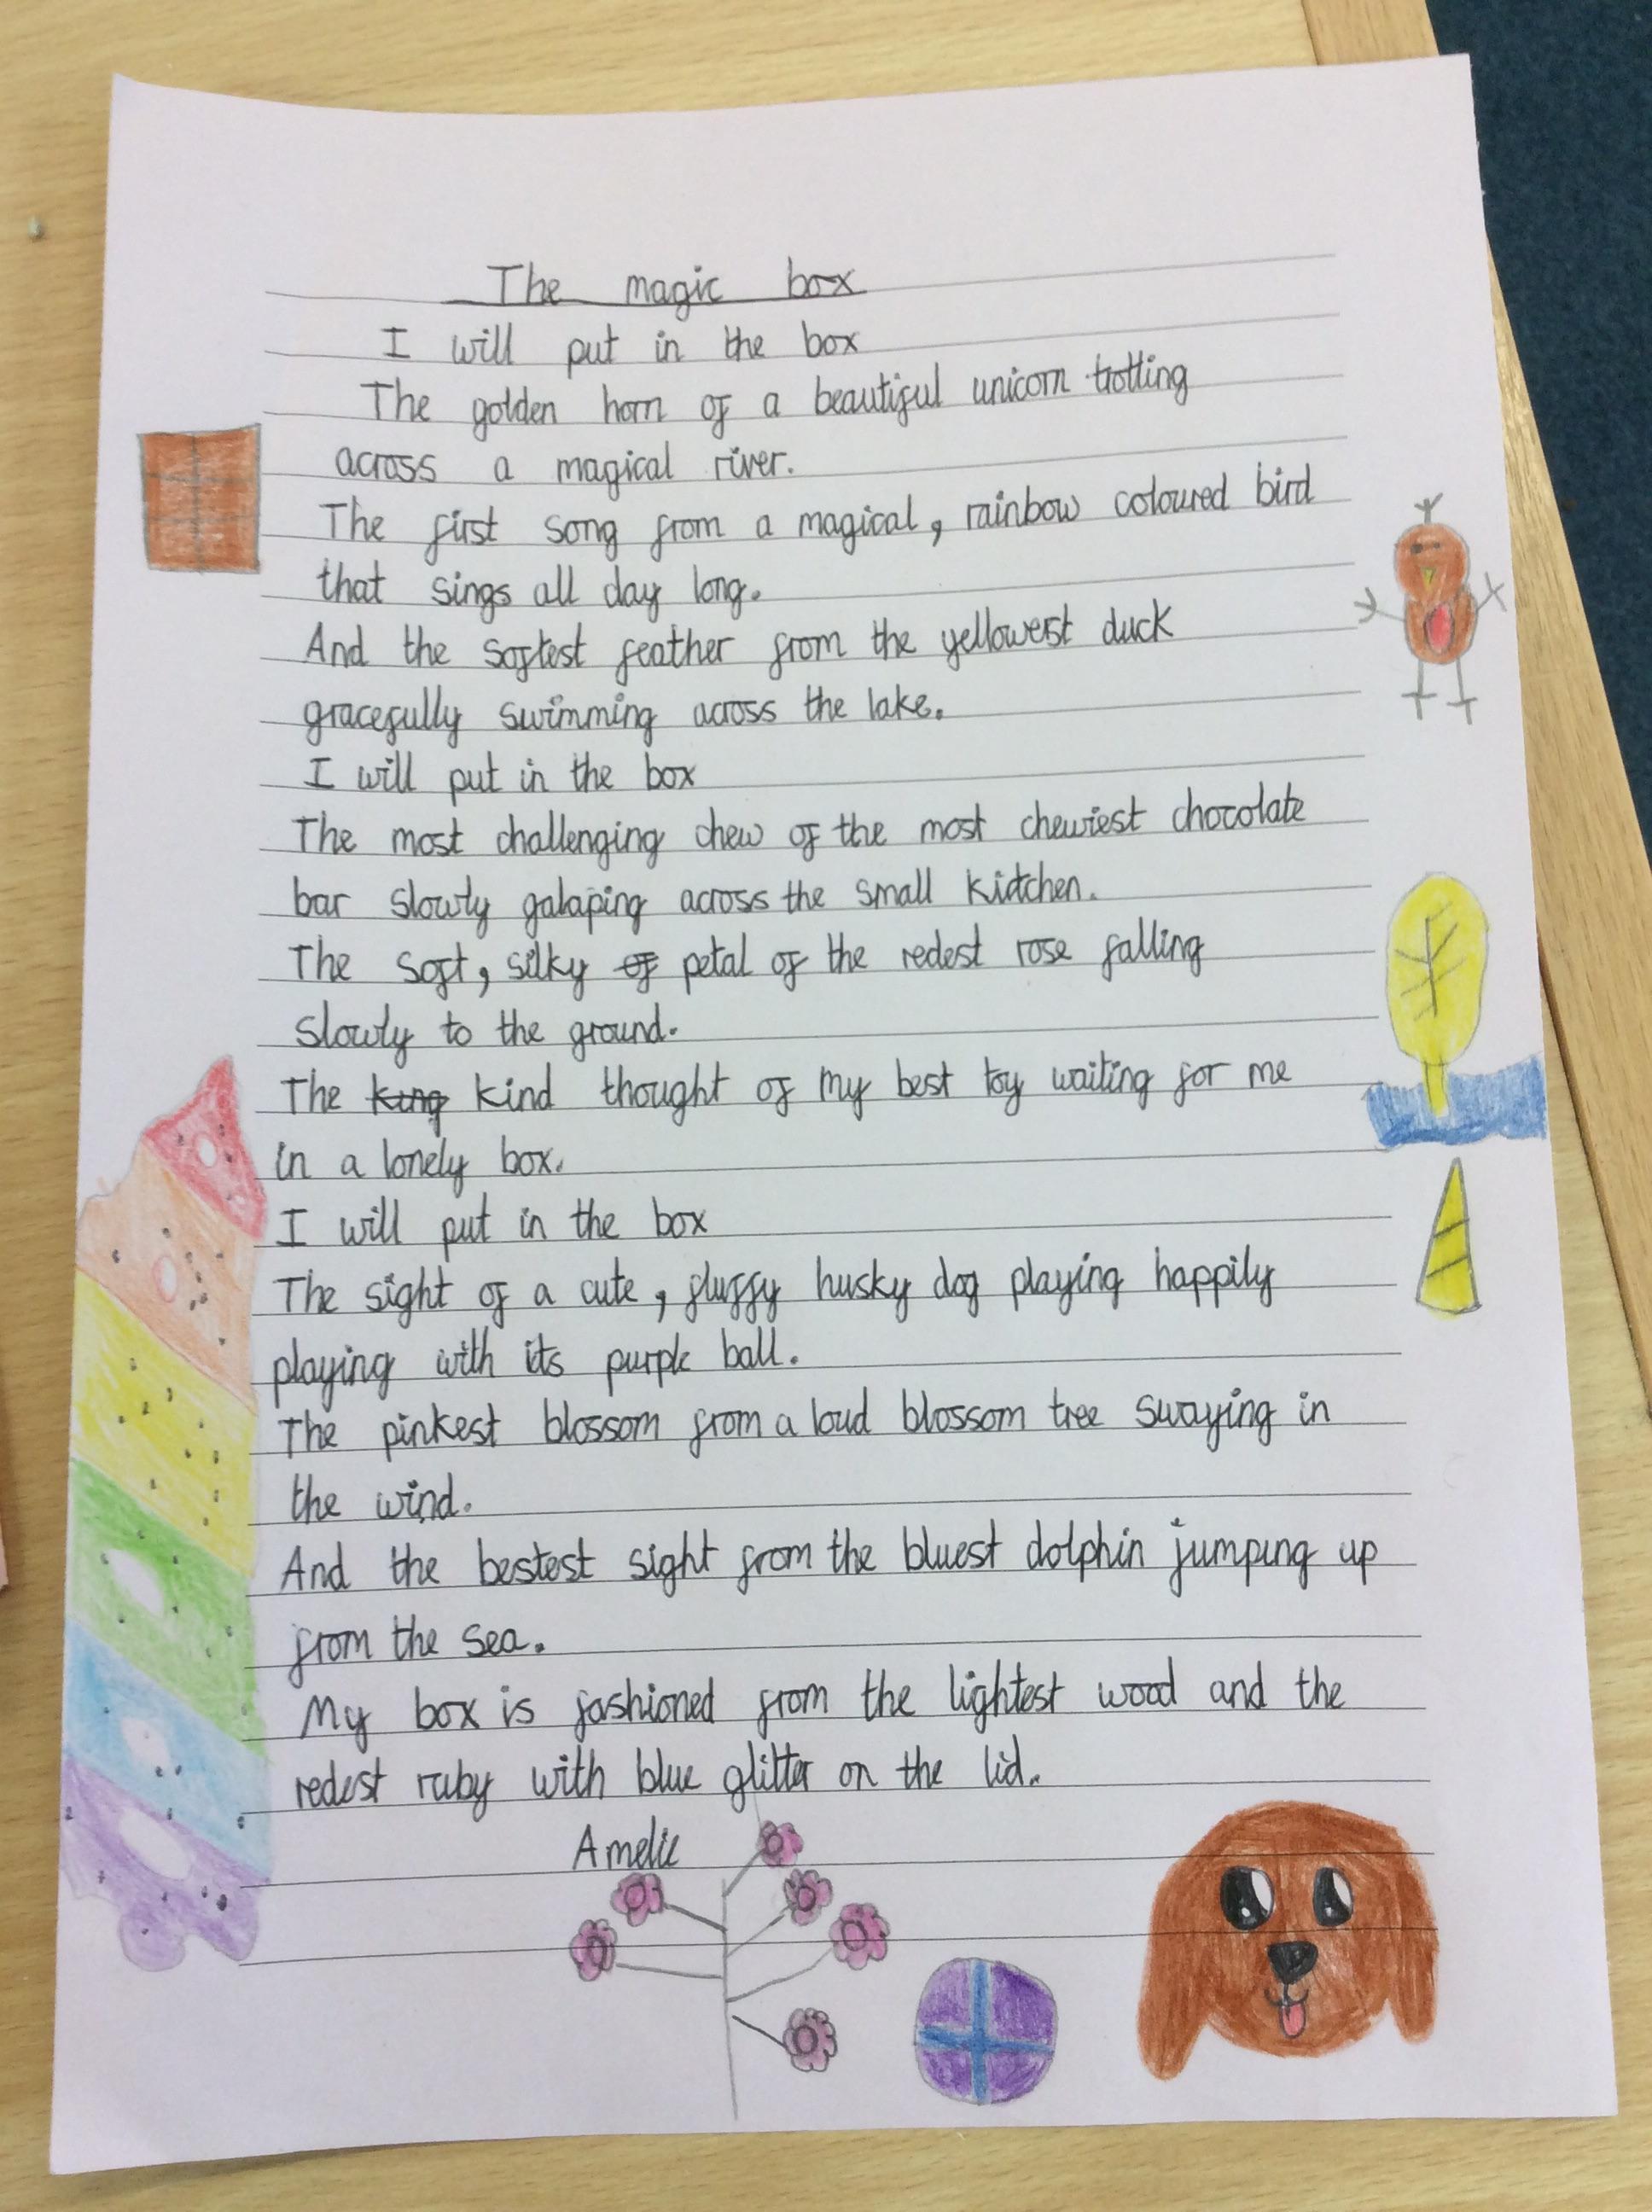 The magic box
I will put in the box
The golden horn of a beautiful unicorn trotting
across a magical river.
The first song from a magical, rainbow coloured bird
that sings all day long.
And the softest feather from the yellowest duck
gracefully swimming across the lake.
I will put in the box
The most challenging chew of the most chewiest chocolate
bar slowly galaping across the small kidtchen.
The soft, silky of petal of the redest rose falling
slowly to the ground.
The king kind thought of my best toy waiting for me
in a lonely box.
I will put in the box
The sight of a cute, fluffy husky dog playing happily
playing with its purple ball.
The pinkest blossom from a loud blossom tree swaying in
the wind.
And the bestest sight from the bluest dolphin jumping up
from the sea.
My box is fashioned from the lightest wood and the
redest ruby with blue glitter on the lid.
Amelie